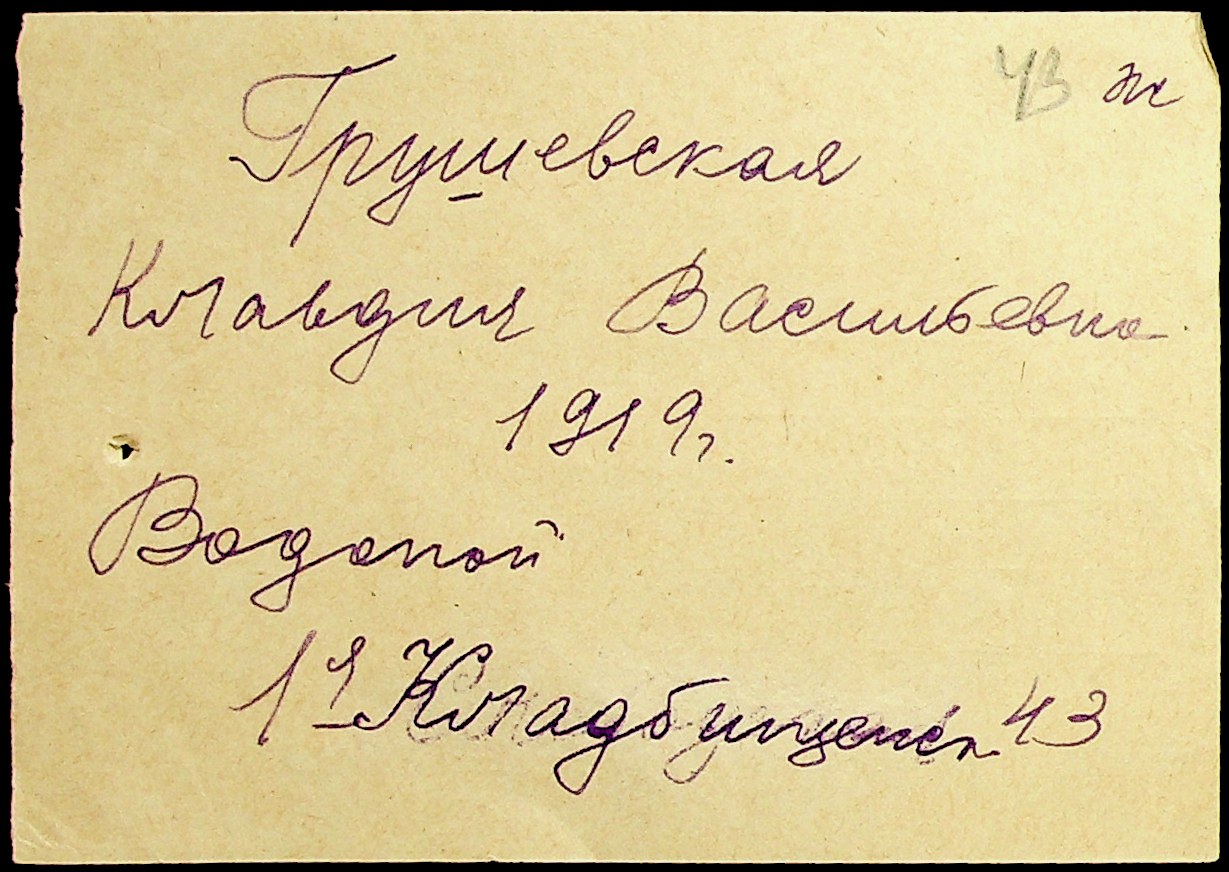 43 ж
Грушевская
Клавдия Васильевна
1919г.
Водопой
1я Кладбищенск. 43